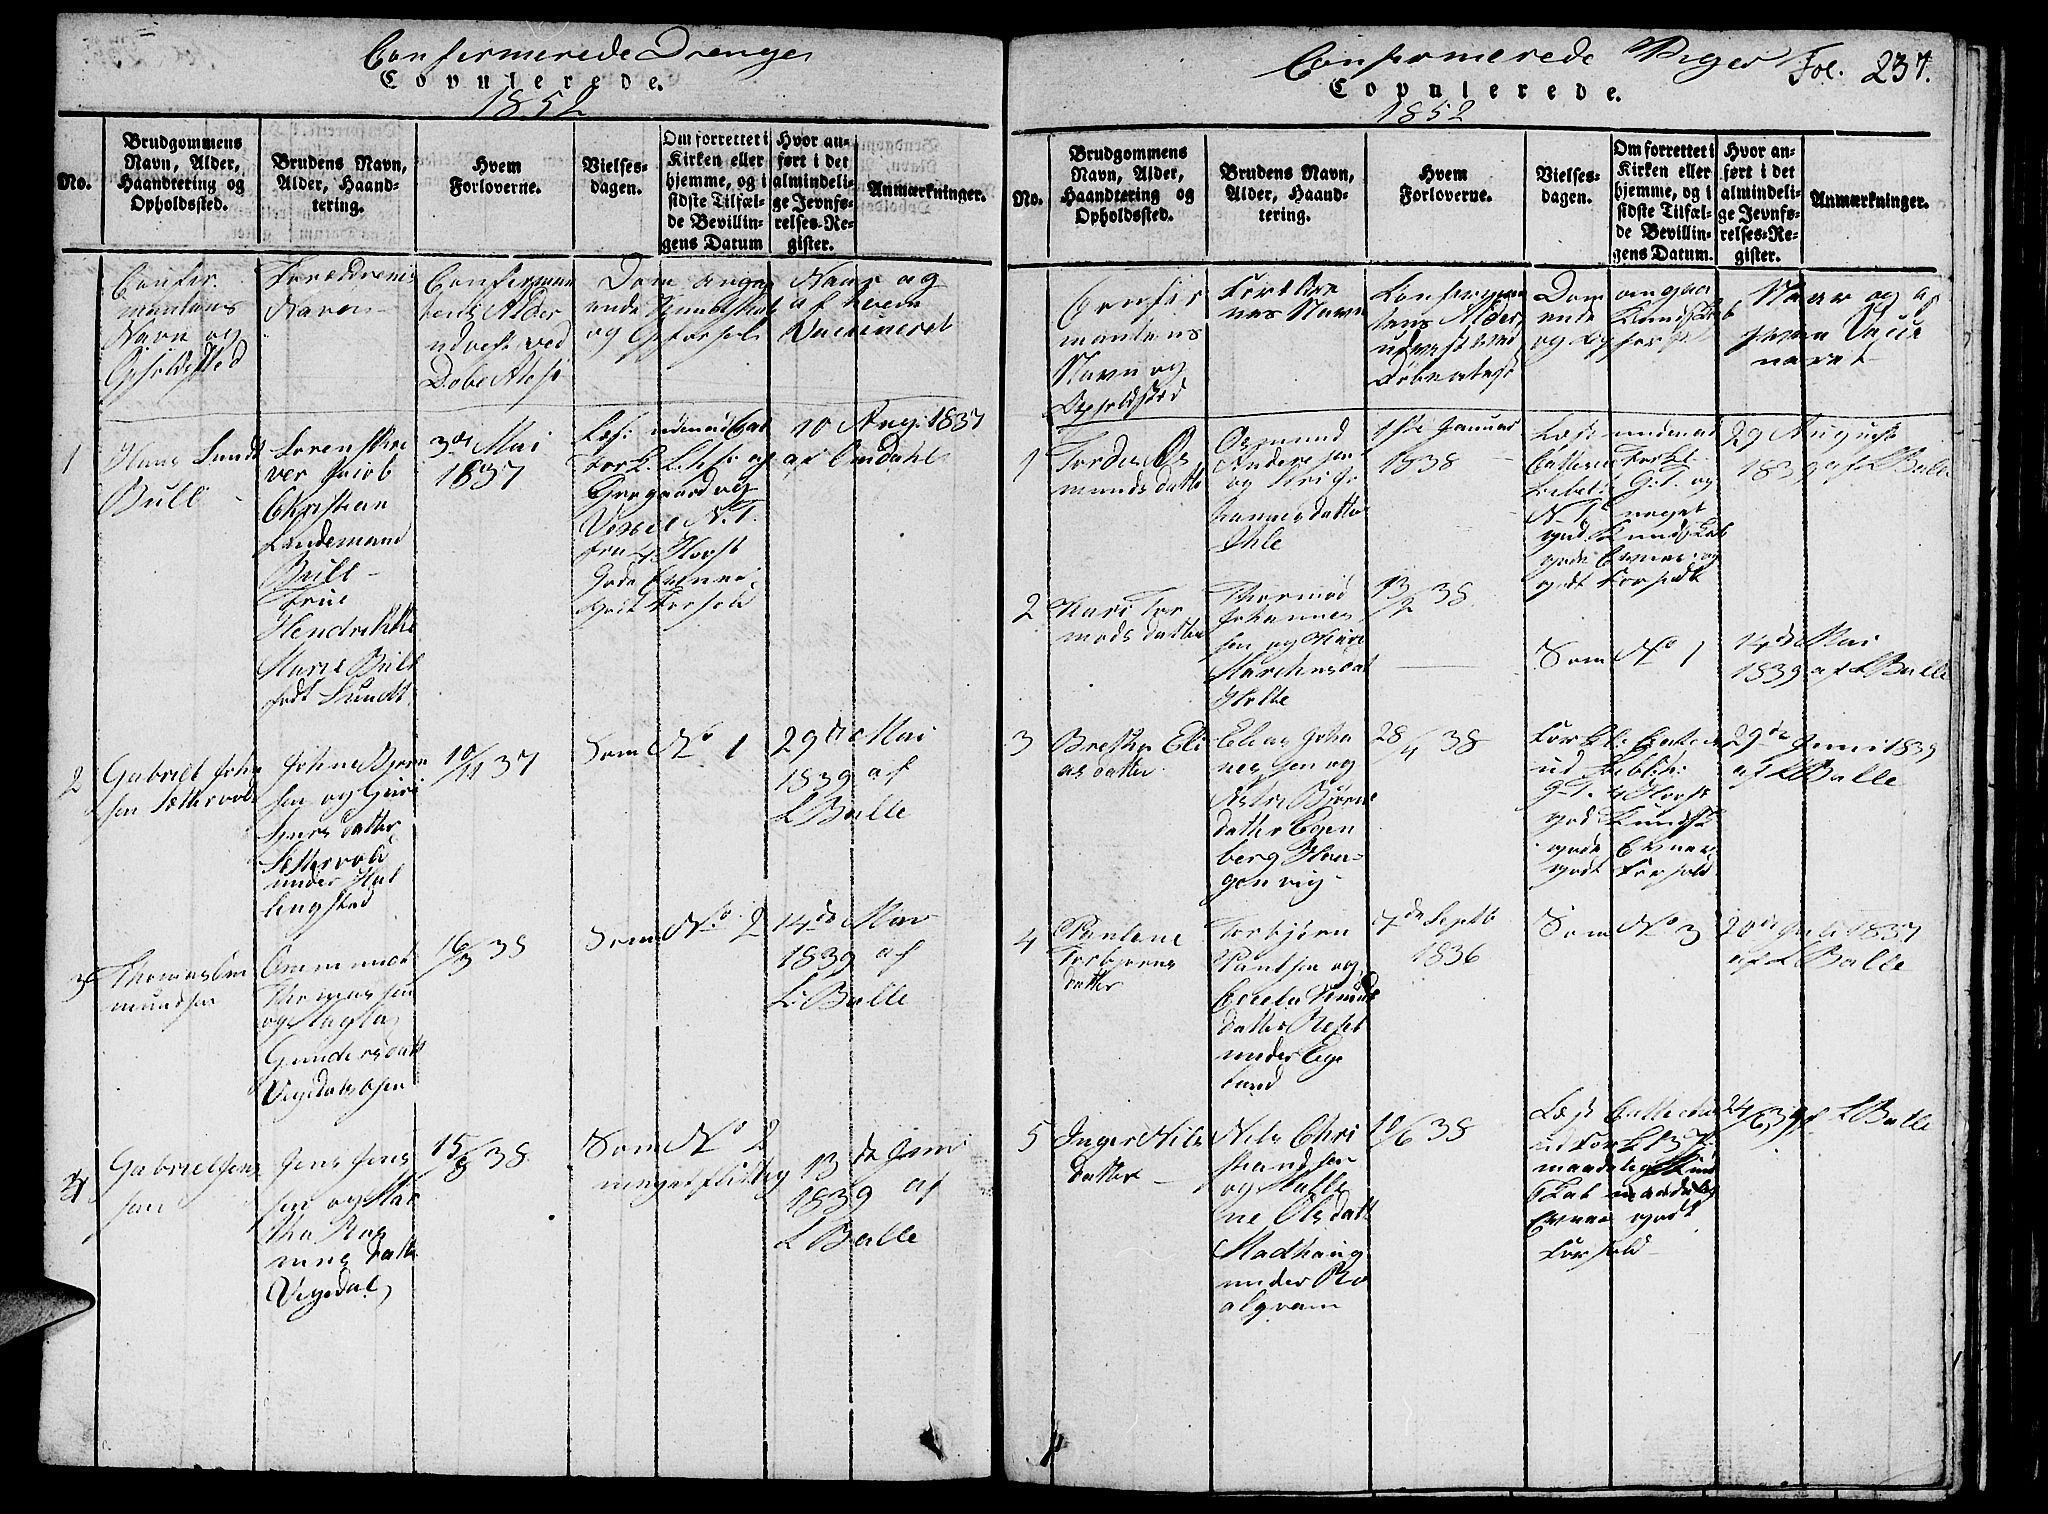 Confirmerede Drenge
Copulerede.
1852
No.
Brudgommens
Navn, Alder,
Haandtering og
Opholdssted.
Brudens Navn,
Alder, Haand-
tering.
Hvem
Forloverne.
Vielses-
dagen.
Om forrettet i
Kirken eller
hjemme, og i
sidste Tilfæl-
de Bevillin-
gens Datum
Hvor an-
ført i det
almindeli-
ge Jevnfø-
relses-Re-
gister.
Anmærkninger.
Confir
mantens
Navn og
Opholdsted
Forældrenes
Navn
Confirman
tens Alder
udvest ved
Døbe Attest
Dom anga
ende Kundskab
og Opførsel
Naar og
af hvem
Vaccineret
1
Hans Lundt
Bull
Sorenskri
ver Jacob
Christian
Lindemand
Bull
Frue
Hendrikke
Marie Bull
født Lundt
3die Mai
1837
10 Aug: 1837
af Omdahl
2
Gabriel John
sen Sættervold
John Bjørn
sen og Guri
Ivers datter
Sættervold
under Hæl
lingstad
10/11 37
Som No 1
29de Mai
1839 af
L Balle
3
Thomas Om
mundsen
Ommund
Thomassen
og
Gunders datt
16/3 38
Som No 2
14de Mai
1839 af
L: Balle
4
Gabriel Jens
sen
Jens Jens
sen og Mar
tha Ras
mus datter
Vigedal
15/8 38
Som No 2
meget flittig
13de Juni
1839 af
L Balle
Confirmerede Piger
Fol. 237.
Copulerede.
1852
No.
Brudgommens
Navn, Alder,
Haandtering og
Opholdssted.
Brudens Navn,
Alder, Haand-
tering.
Hvem
Forloverne.
Vielses-
dagen.
Om forrettet i
Kirken eller
hjemme, og i
sidste Tilfæl-
de Bevillin-
gens Datum.
Hvor an-
ført i det
almindeli-
ge Jevnfø-
relses-Re-
gister.
Anmærkninger.
Confir
mantens
Navn og
Opholdsted
Foreldre
nes Navn
Confirman
tens Alder,
udvest ved
Døbeatest
Dom angaa
ende Kundskab
og Opførsel
Naar og af
hvem Vacci
neret
1
Tordis Os
munds datter
Osmund
Andersen
og Siri Jo
hannes datter
Ihle
1ste Januar
1838
29 August
1839 af L Balle
2
Kari Tor
mods datter
Thormod
Johannes
sen og
13/2 38
Som No 1
14de Mai
1839 af L Balle
3
Bretha Eli
as datter
Elias Joha
nes sen og
Astri Bjørns
datter Egen
berg
28/4 38
29de Juni 1839
af L Balle
4
Pauline
Torbjørns
datter
Torbjørn
Paulsen og
under Ege
land
7de Septb
1836
Som No 3
20de Juli 1837
af L Balle
5
Inger Nils
datter
Nils Chri
stiansen
og Malle
ne Olsdatt
under Ro
alqvam
10/6 38
24/6 39 af L Balle